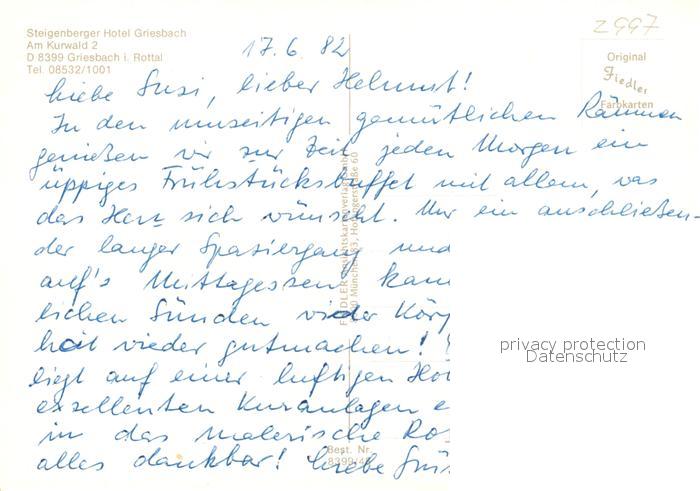 Steigenberger Hotel Griesbach
Am Kurwald 2
D 8399 Griesbach i. Rottal
Tel. 08532/1001
z 997
Original
Fiedler
Farbkarten
17.6.82
Liebe Susi, lieber Helmut!
In den umseitigen gemütlichen Räumen
genießen wir zur Zeit jeden Morgen ein
üppiges Frühstücksbuffet mit allem, was
das Herz sich wünscht. Nur ein anschließen-
der langer Spaziergang und
auf's Mittagessen kann
lichen Sünden wider Körp
heit wieder gutmachen!
liegt auf einer luftigen Hö
exzellenten Kuranlagen e
in das malerische Ro
alles dankbar! Liebe Grüs
Best. Nr.
privacy protection
Datenschutz